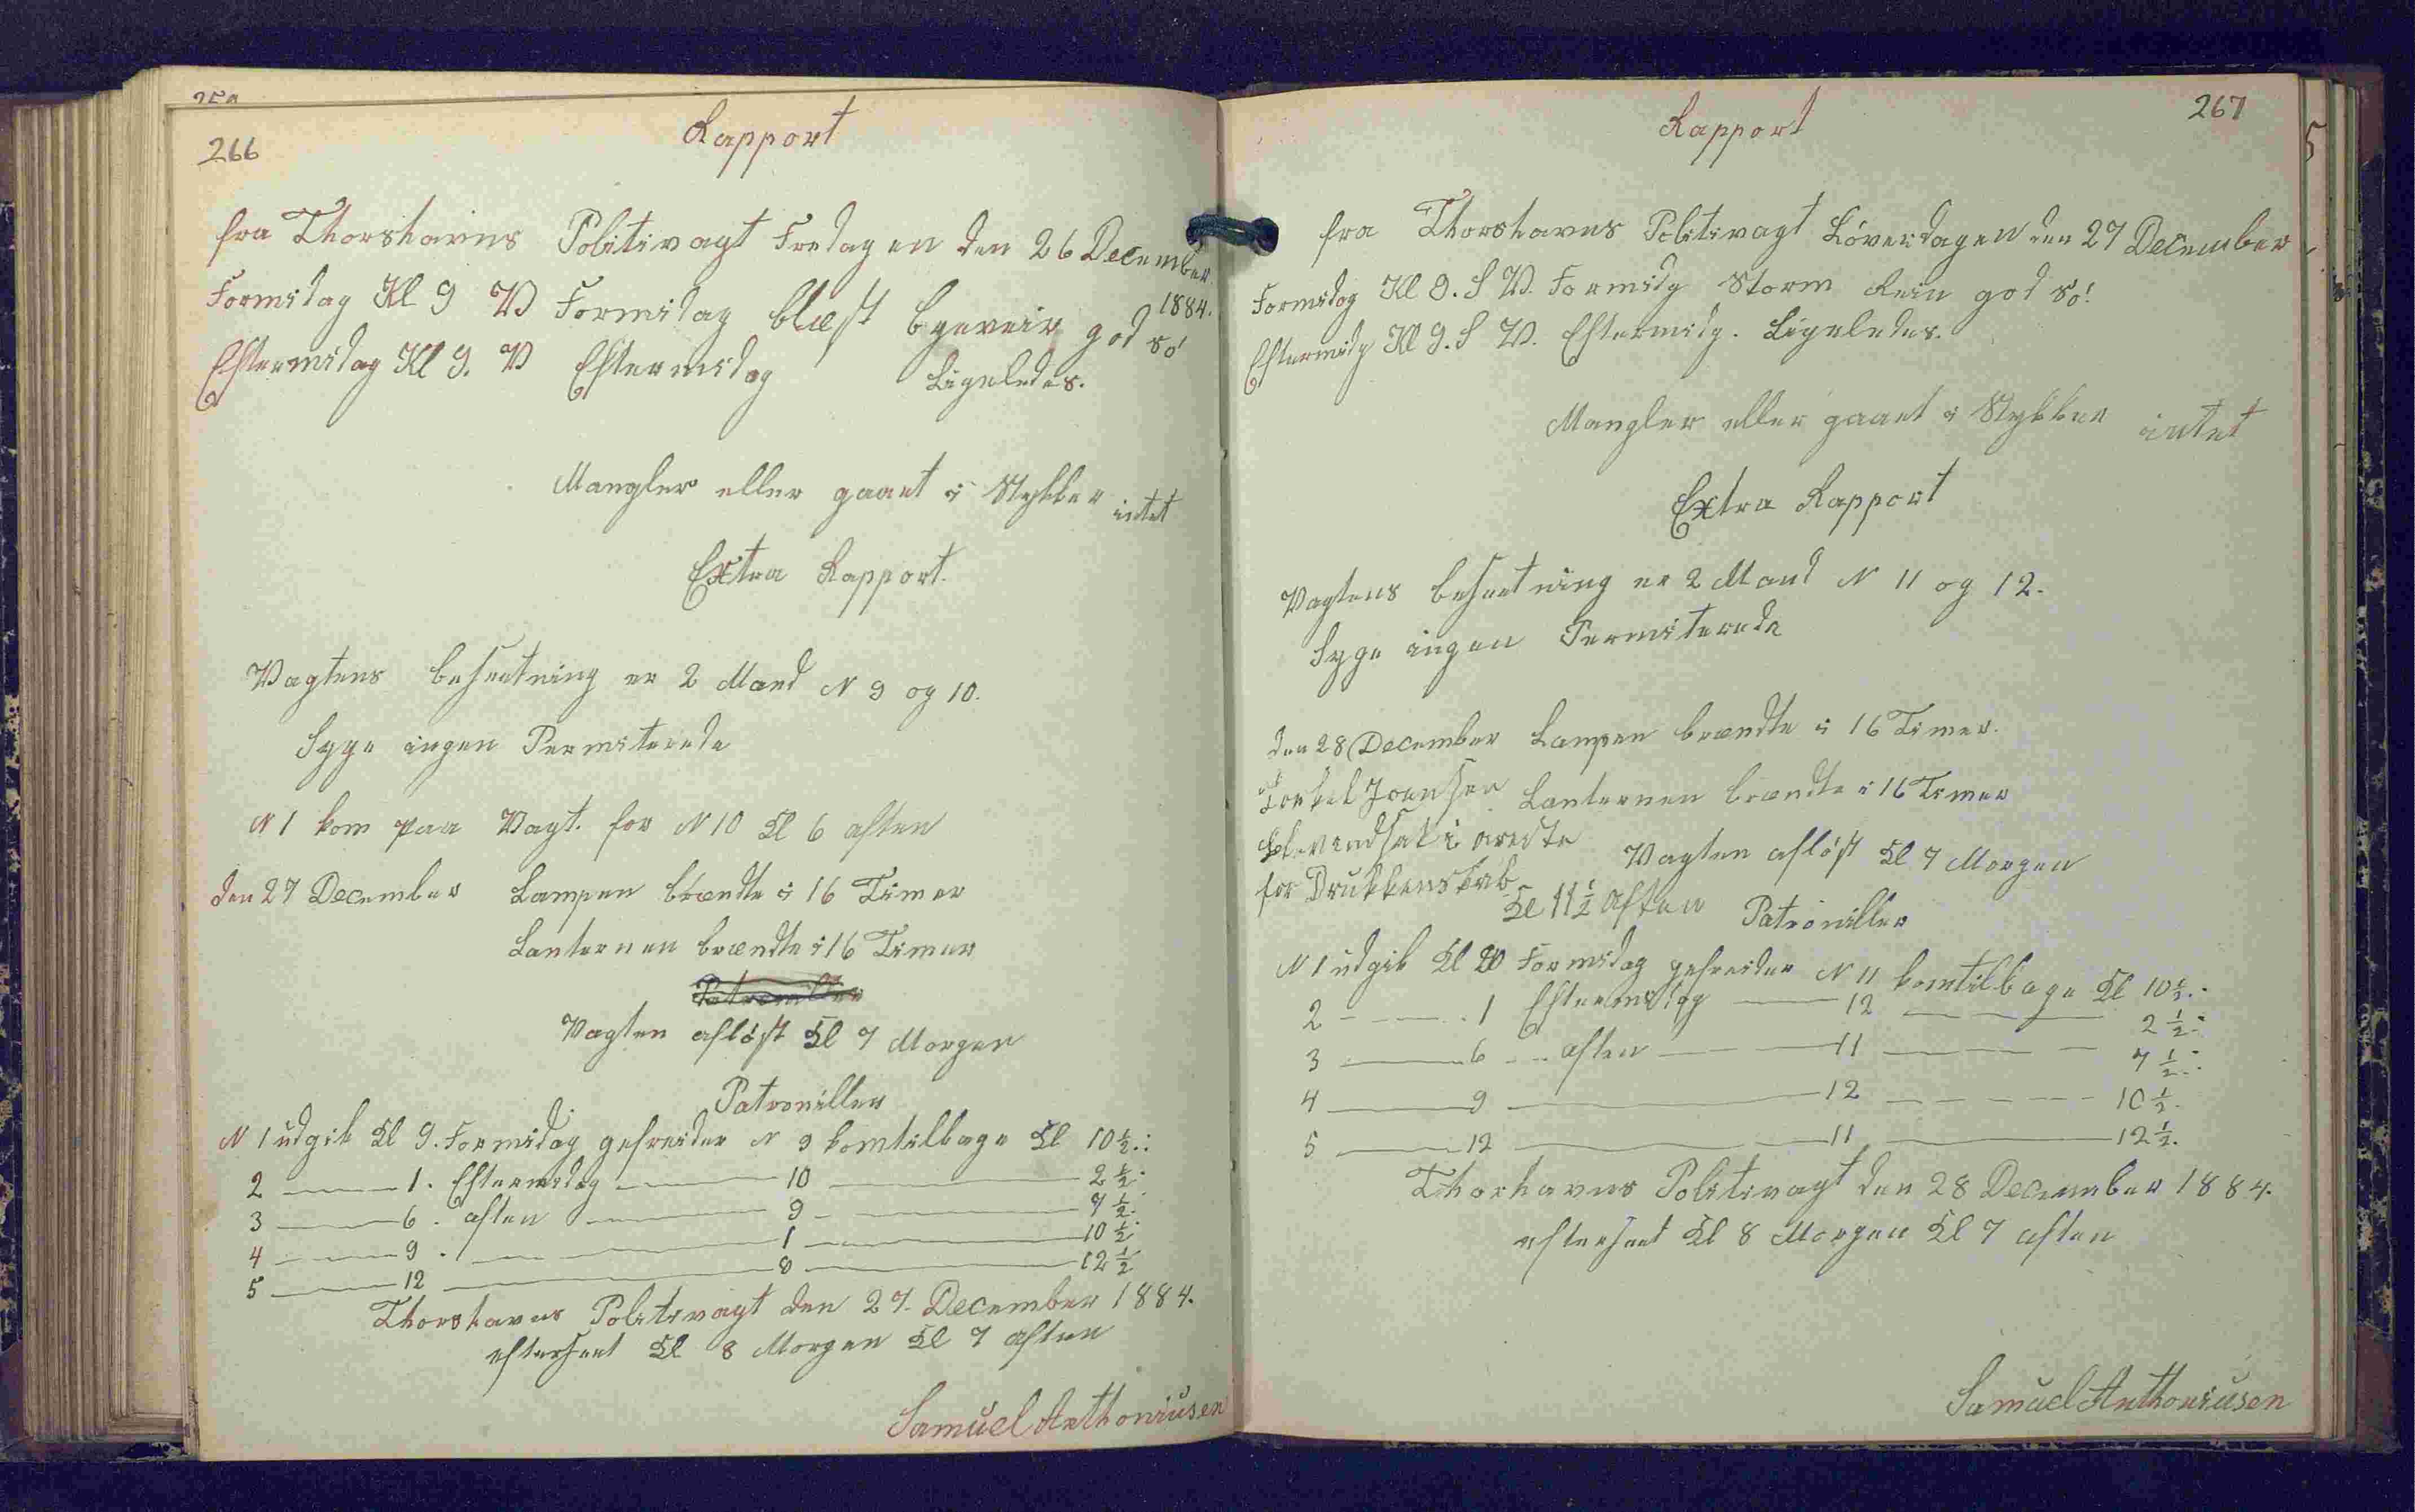 266
Rapport
fra Thorshavns Politivagt Fredagen den 26 December
1884.
Formidag Kl 9 V Formidag blæst bgeveir god sö
Eftermidag Kl 9. V Eftermidag Ligeledes.
Mangler eller gaaet i Stykker intet
Extra Rapport.
Vagtens besætning er 2 Mand N 9 og 10.
Syge ingen Permiterede
N 1 kom paa Vagt. for N 10 Kl 6 aften
den 27 December Lampen brændte i 16 Timer
Lanternen brændte i 16 Timer
Patrouiller
Vagten aflöst Kl 7 Morgen
Patrouiller
N 1 udgik Kl 9. Formidag gefreider N 9 komtilbage Kl 10 1/2.
2 — 1. Eftermidag — 10 — 2 1/2
3 — 6. aften — 9 — 7 1/2
4 — 9. — 1 — 10 1/2
5 — 12 — 8 — 12 1/2
Thorshavns Politivagt den 27. December 1884.
efterseet Kl 8 Morgen Kl 7 aften
Samuel Anthoniusen
267
Rapport
fra Thorshavns Politivagt Löverdagen den 27 December
Formidag Kl 9. S V. Formidg Storm Rein god sö!
Eftermidg Kl 9. S V. Eftermidg. Ligeledes.
Mangler eller gaaet i Stykker intet
Extra Rapport
Vagtens besætning er 2 Mand N 11 og 12.
Syge ingen Permiterede
den 28 December Lampen brændte i 16 Timer.
Joensen Lanternen brændte i 16 Timer
blev indsat i areste
Vagten aflöst Kl 7 Morgen
for Drukkenskab
Kl 11 1/2 Aften
Patrouiller
N 1 udgik Kl Formidag gefreider N 11 komtilbage Kl 10 1/2.
2 — 1 Eftermidag — 12 — 2 1/2
3 — 6 — aften — 11 — 7 1/2
4 — 9 — 12 — 10 1/2.
5 — 12 — 11 — 12 1/2.
Thorhavns Politivagt den 28 December 1884.
efterseet Kl 8 Morgen Kl 7 aften
Samuel Anthoniusen